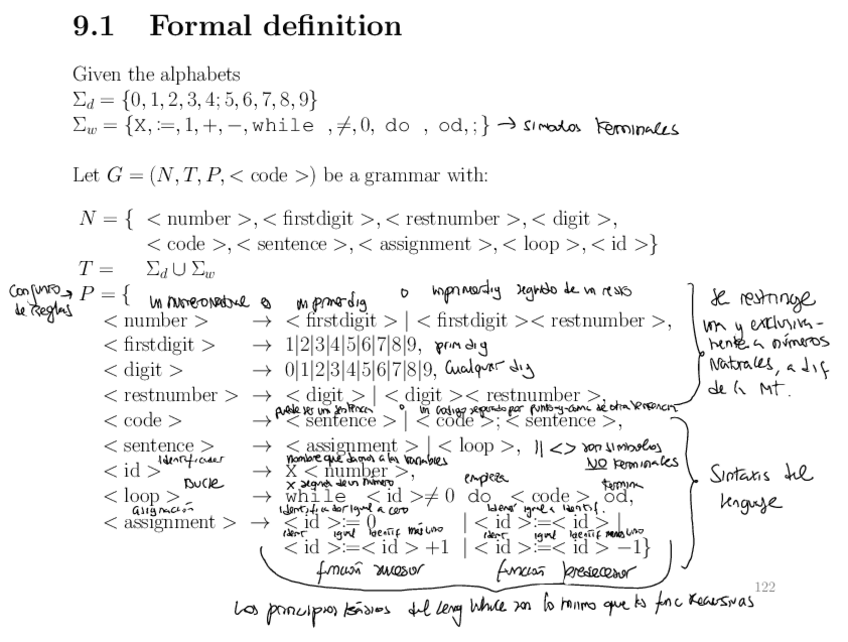 9.1 Formal definition
Given the alphabets
Σd = {0, 1, 2, 3, 4; 5, 6, 7, 8, 9}
Σw = {X, :=, 1, +, −, while , ≠, 0, do , od, ; } → símbolos terminales
Let G = (N, T, P, < code >) be a grammar with:
N = { < number >, < firstdigit >, < restnumber >, < digit >,
< code >, < sentence >, < assignment >, < loop >, < id >}
T = Σd ∪ Σw
Conjunto de Reglas → P = {
un número natural es un primer dig o un primer dig seguido de un resto
< number > → < firstdigit > | < firstdigit >< restnumber >,
< firstdigit > → 1|2|3|4|5|6|7|8|9, prim dig
< digit > → 0|1|2|3|4|5|6|7|8|9, Cualquier dig
< restnumber > → < digit > | < digit >< restnumber >,
Se restringe
única y exclusiva-
mente a números
Naturales, a dif
de la MT.
puede ser una sentencia o un código seguido por punto-y-coma de otra sentencia
< code > → < sentence > | < code >; < sentence >,
< sentence > → < assignment > | < loop >, || <> son símbolos
NO terminales
Identificador nombre que damos a las variables
< id > → X < number >,
X seguido de un número
Bucle empieza termina
< loop > → while < id >≠ 0 do < code > od,
Sintaxis del
lenguaje
asignación identificador igual a cero ident igual a identif.
< assignment > → < id >:= 0 | < id >:=< id > |
ident igual identif más uno ident igual identif menos uno
< id >:=< id > +1 | < id >:=< id > −1}
función sucesor función predecesor
122
Los principios básicos del leng While son lo mismo que las func recursivas